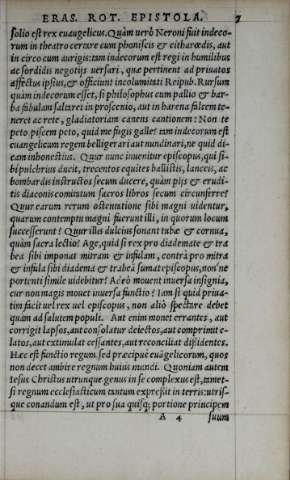 ERAS. ROT. EPISTOLA. 7
solio est rex euangelicus. Quàm uerò Neroni fuit indeco-
rum in theatro certare cum phonascis & citharœdis, aut
in circo cum aurigis: tam indecorum est regi in humilibus
ac sordidis negotijs uersari, quæ pertinent ad priuatos
affectus ipsius, & officiunt incolumitati Reipub. Rursum
quàm indecorum esset, si philosophus cum pallio & bar-
ba fabulam saltaret in proscenio, aut in harena falcem te-
neret ac rete, gladiatoriam canens cantionem: Non te
peto, piscem peto, quid me fugis galle? tam indecorum est
euangelicum regem belligerari aut nundinari, ne quid di-
cam inhonestius. Quur nunc inuenitur episcopus, qui si-
bi pulchrius ducit, trecentos equites ballistis, lanceis, ac
bombardis instructos secum ducere, quàm pijs & erudi-
tis diaconis comitatum sacros libros secum circunferre?
Quur earum rerum ostentatione sibi magni uidentur,
quarum contemptu magni fuerunt illi, in quorum locum
successerunt? Quur illis dulcius sonant tubæ & cornua,
quàm sacra lectio? Age, quid si rex pro diademate & tra
bea sibi imponat mitram & infulam, contrà pro mitra
& infula sibi diadema & trabeā sumat episcopus, non'ne
portenti simile uidebitur? Adeò mouent inuersa insignia,
cur non magis mouet inuersa functio? Iam si quid priua-
tim facit uel rex uel episcopus, non aliò spectare debet
quàm ad salutem populi. Aut enim monet errantes, aut
corrigit lapsos, aut consolatur deiectos, aut comprimit e-
latos, aut extimulat cessantes, aut reconciliat dissidentes.
Hæc est functio regum, sed præcipuè euāgelicorum, quos
non decet ambire regnum huius mundi. Quoniam autem
Iesus Christus utrunque genus in se complexus est, tamet-
si regnum ecclesiasticum tantum expressit in terris: utris-
que conandum est, ut pro sua quisq; portione principem
A 4 suum